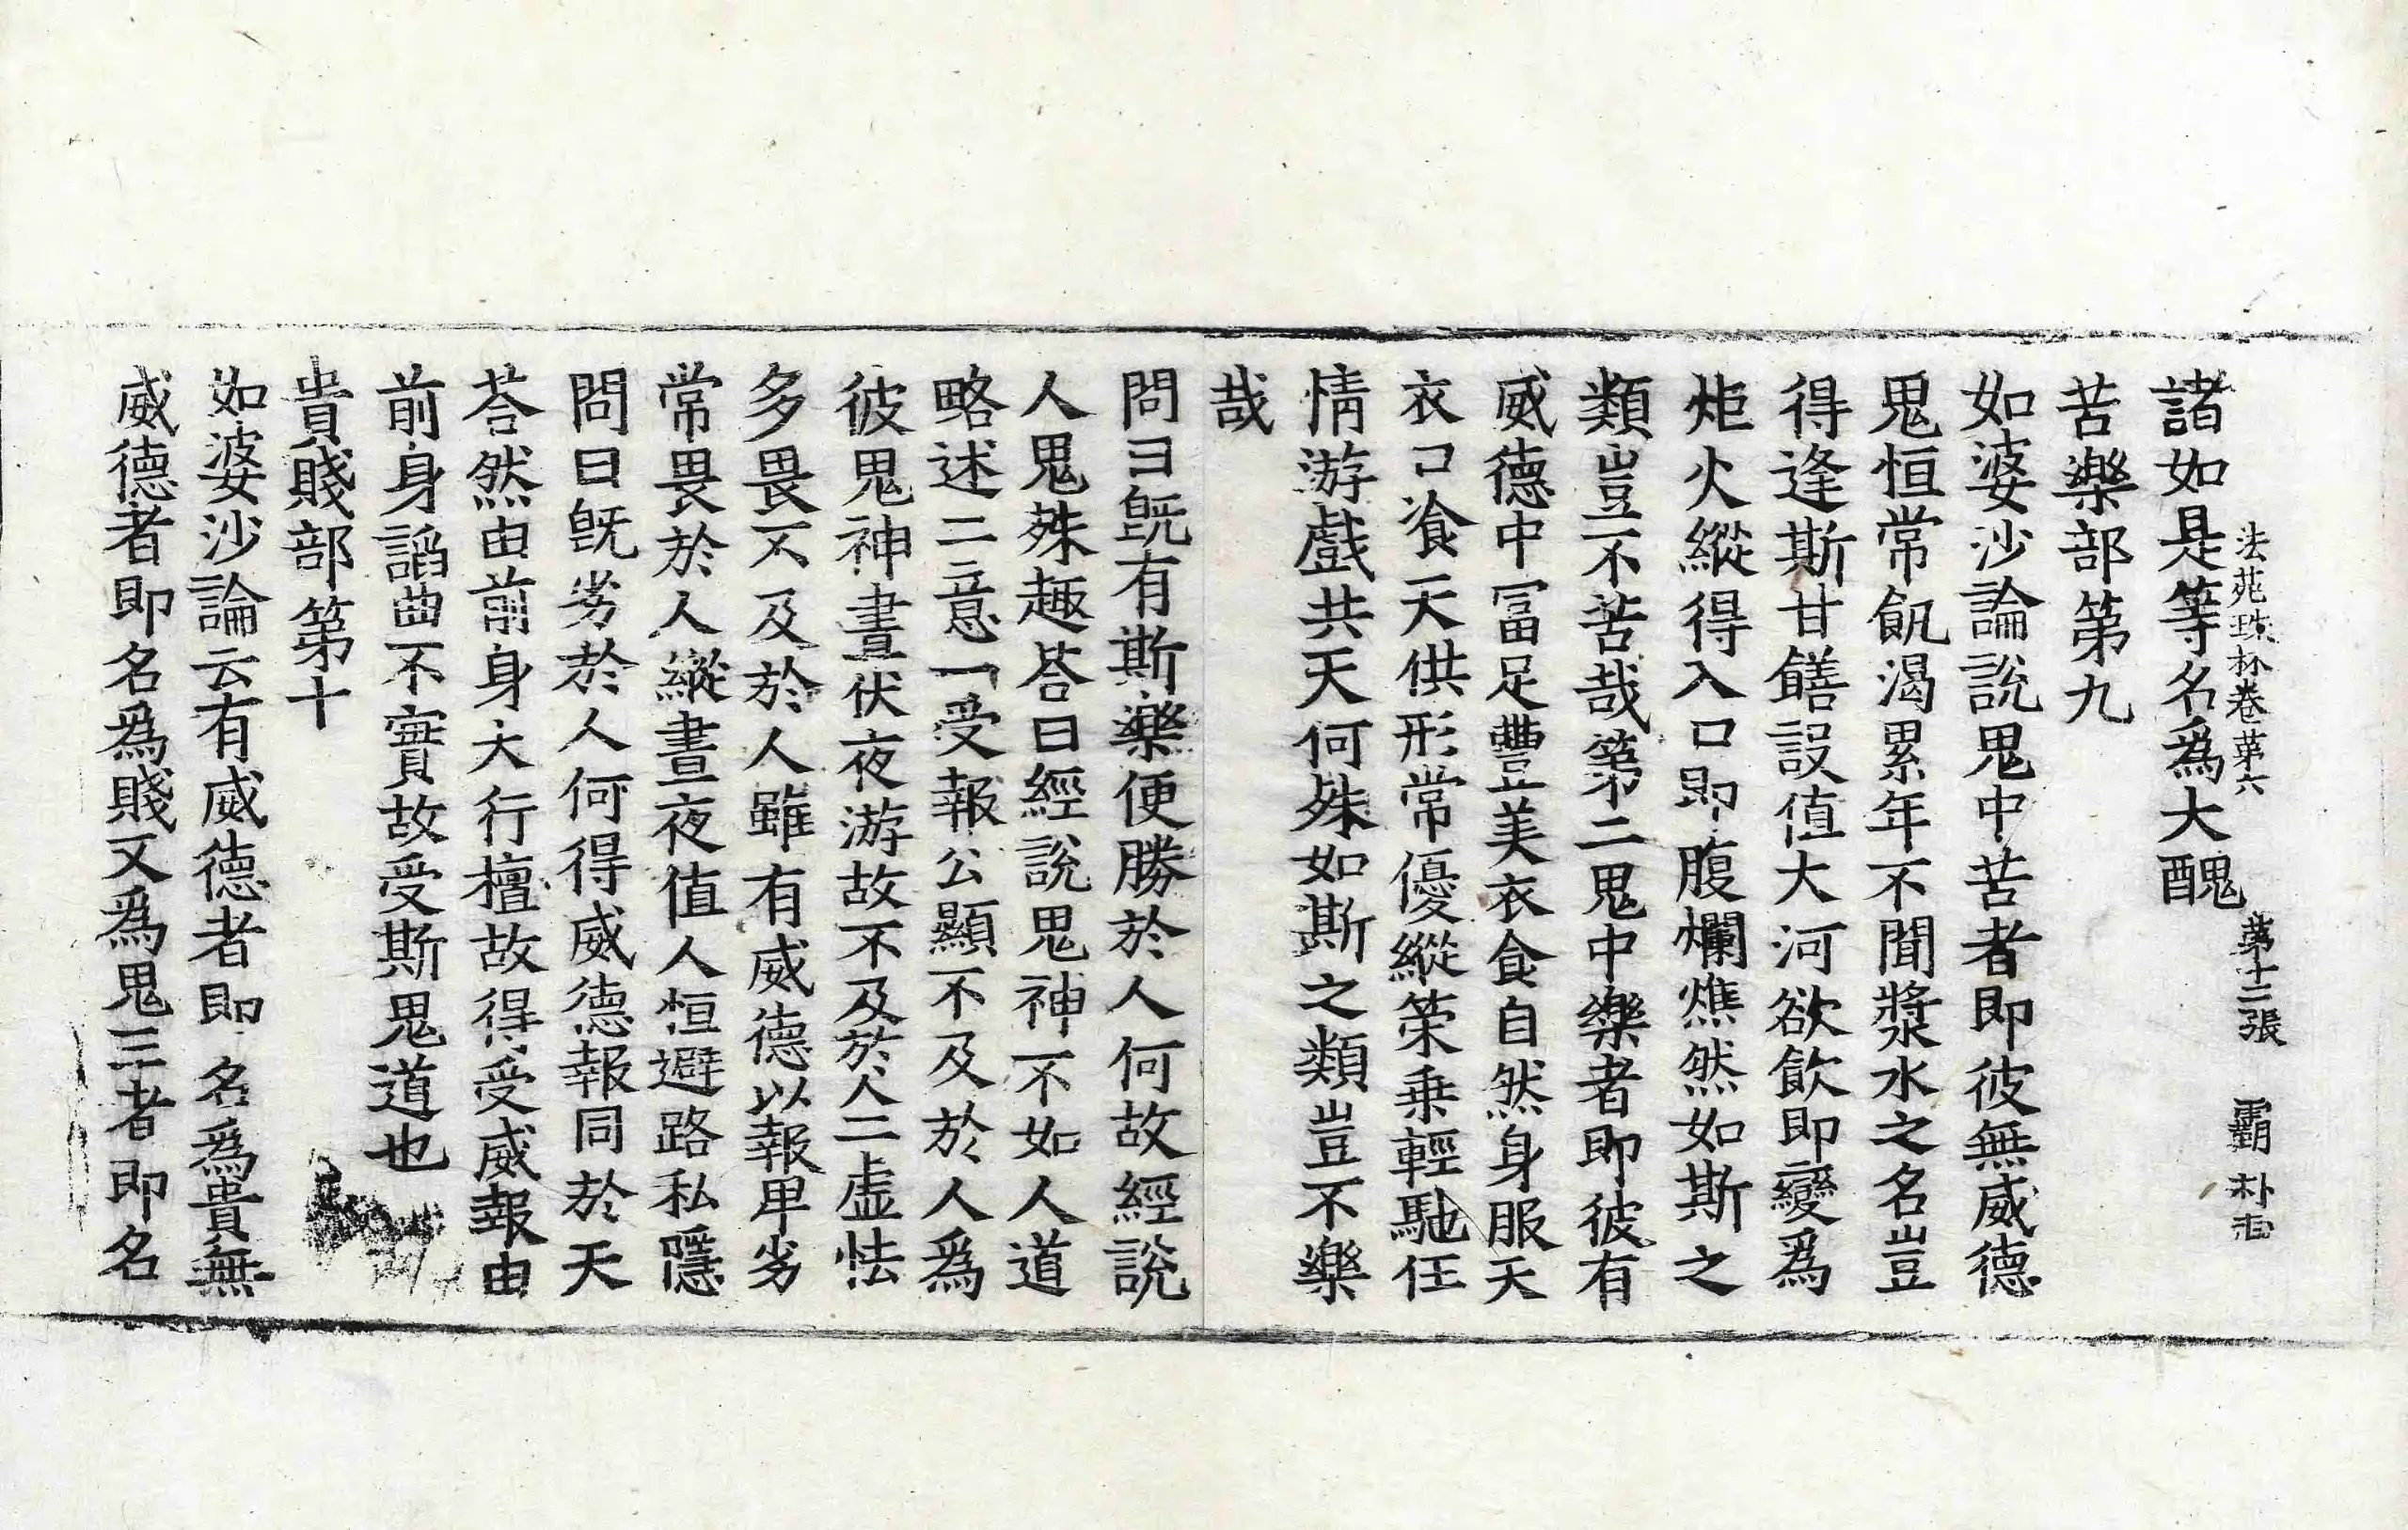 諸如是等名爲大醜
法苑珠林卷第六 第十二張 霸 朴
苦樂部第九
如婆沙論說鬼中苦者即彼無威德
鬼恒常飢渴累年不聞漿水之名豈
得逢斯甘饍設值大河欲飮即變爲
炬火縱得入口即腹爛燋然如斯之
類豈不苦哉第二鬼中樂者即彼有
威德中冨足豐美衣食自然身服天
衣口飡天供形常優縱策乗輕馳任
情游戲共天何殊如斯之類豈不樂
哉
問曰旣有斯樂便勝於人何故經說
人鬼殊趣荅曰經說鬼神不如人道
略述二意一受報公顯不及於人爲
彼鬼神晝伏夜游故不及於人二虛怯
多畏不及於人雖有威德以報卑劣
常畏於人縱晝夜值人恒避路私隱
問曰旣劣於人何得威德報同於天
荅然由前身大行檀故得受威報由
前身諂曲不實故受斯鬼道也
貴賤部第十
如婆沙論云有威德者即名爲貴無
威德者即名爲賤又爲鬼王者即名